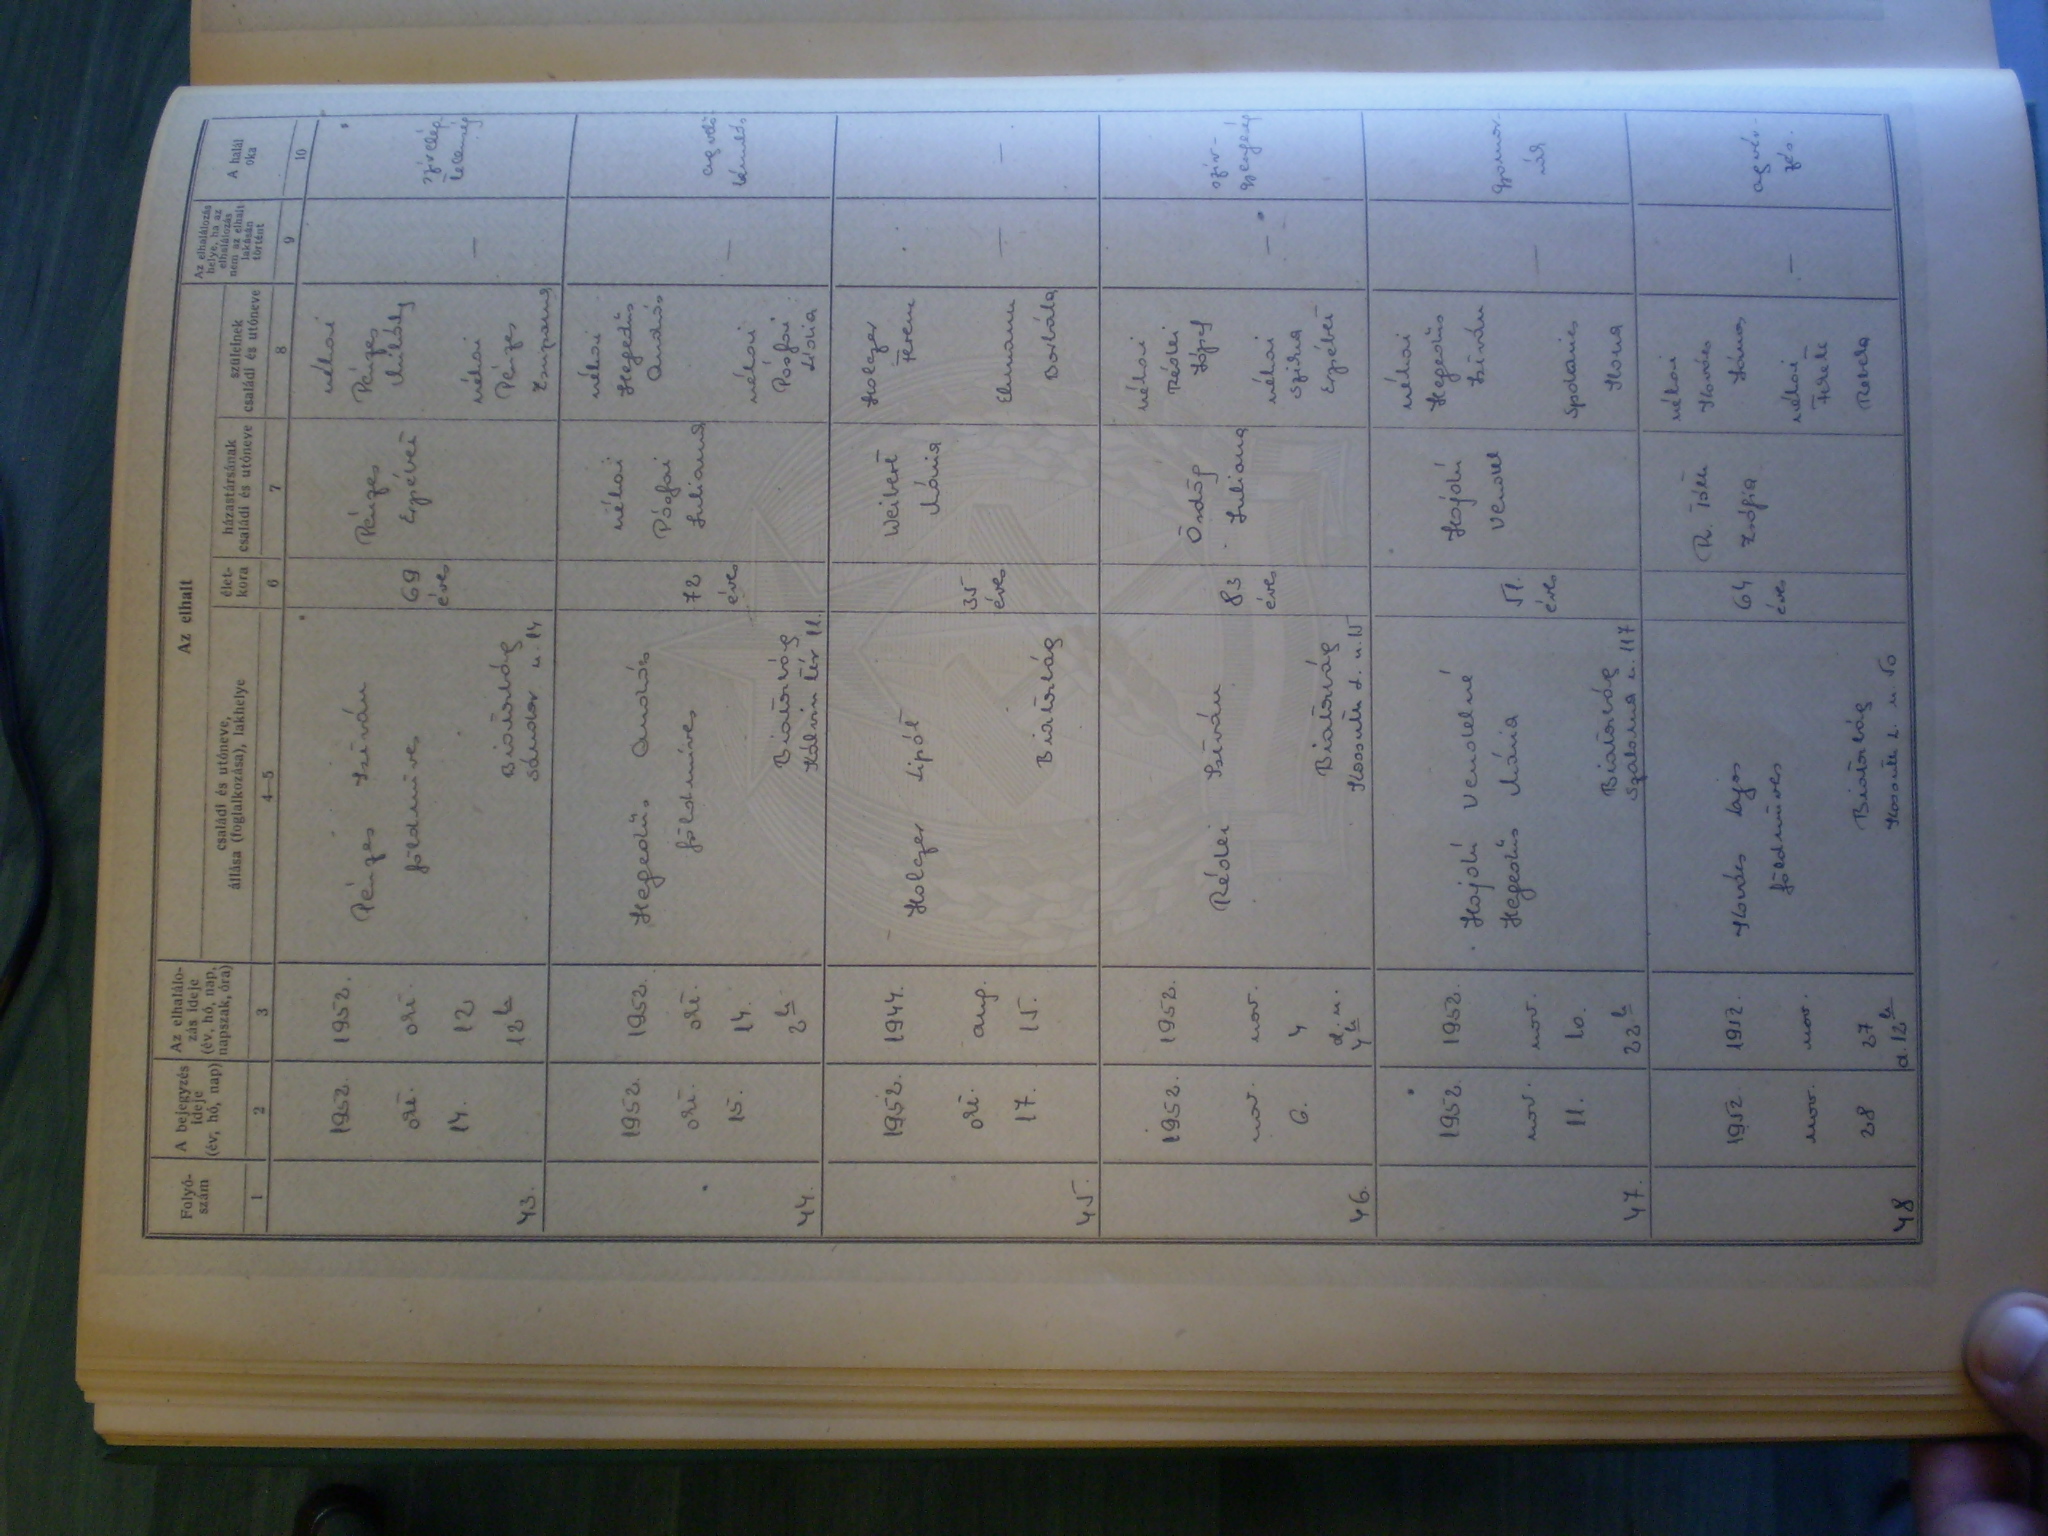 Az elhalt
Folyó-
szám
A bejegyzés
ideje
(év, hó, nap)
Az elhalálo-
zás ideje
(év, hó, nap,
napszak, óra)
családi és utóneve,
állása (foglalkozása), lakhelye
élet-
kora
házastársának
családi és utóneve
szüleinek
családi és utóneve
Az elhalálozás
helye, ha az
elhalálozás
nem az elhalt
lakásán
történt
A halál
oka
1
2
3
4—5
6
7
8
9
10
43.
1952.
okt.
14.
1952.
okt.
12
12 h
Pénzes István
földműves
Biatorbág
Sándor u. 14
69
éves
Pénzes
Erzsébet
néhai
Pénzes
Mihály
néhai
Pénzes
Zsuzsanna
—
44.
1952.
okt.
15.
1952.
okt.
14.
2 h
Hegedűs András
földműves
Biatorbág
Kálvin tér 11.
72
éves
néhai
Pósfai
Julianna
néhai
Hegedűs
András
néhai
Pósfai
Mária
—
45.
1952.
okt.
17.
1944.
aug.
15.
Holczer Lipót
Biatorbág
35
éves
Weibert
Mária
Holczer
Ferenc
Elmann
Borbála
—
—
46.
1952.
nov.
6.
1952.
nov.
4
d. u.
4 h
Rédei István
Biatorbág
Kossuth L. u. 15
83
éves
Ördög
Julianna
néhai
Rédei
József
néhai
Szikra
Erzsébet
—
szív-
gyengeség
47.
1952.
nov.
11.
1952.
nov.
10.
22 h
Hajdú Vendelné
Hegedűs Mária
Biatorbág
Szabadság u. 117
51.
éves
Hajdú
Vendel
néhai
Hegedűs
István
Ilona
—
gyomor-
rák
48
1952
nov.
28
1952.
nov.
27
d. 12 h
Kovács Lajos
földműves
Biatorbág
Kossuth L. u. 50
64
éves
R. Tóth
Zsófia
néhai
Kovács
János
néhai
Fekete
—
agyvér-
zés.